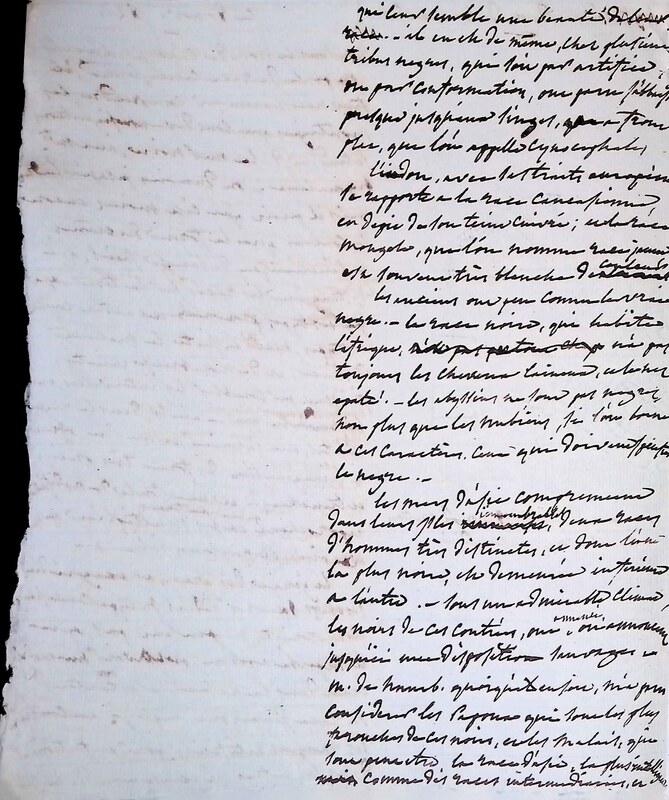 qui leur semble une beauté,
– il en est de même, chez plusieurs
tribus negres, qui soit par artifice,
ou par conformation, ont paru
presque jusqu'aux singes,
plus, que l'on appelle Cynocephales
l'indou, avec les traits européens
se rapporte a la race Caucasienne
en dépit de son teint Cuivré; et la race
mongole, que l'on nomme race jaune
est souvent très blanche de couleur
les anciens ont peu connu le vrai
negre. – la race noire, qui habite
l'afrique, n'a pas
toujours les cheveux laineux, et le nez
epaté. – les abyssins ne sont pas negres
non plus que les nubiens, si l'on borne
a ces caractères, ceux qui doivent
le negre. –
les mers d'asie comprennent
dans leurs isles innombrables, deux races
d'hommes très distinctes, et dont l'une
la plus noire, est demeurée inférieure
a l'autre. – sous un admirable Climat,
les noirs de ces contrées, ont
jusqu'ici une disposition sauvage –
m. de humb. quoiqu'il en soit, n'a pu
considérer les Papous qui sont les plus
prononcés de ces noirs, et les malais, qui
sont peut etre la race d'asie, la plus
comme des races intermédiaires, et